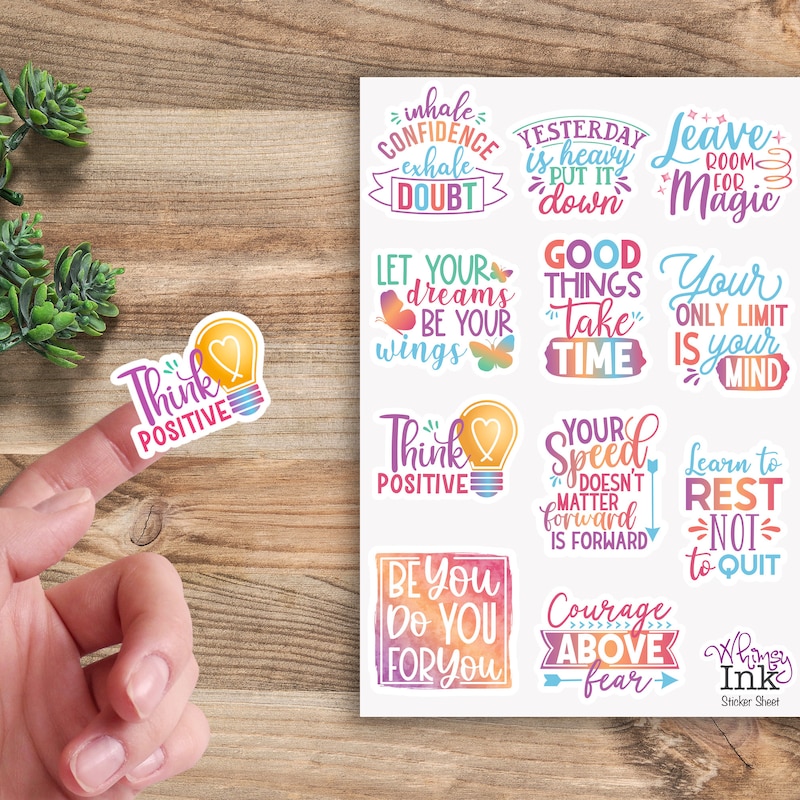 Think
POSITIVE
inhale
CONFIDENCE
exhale
DOUBT
YESTERDAY
is heavy
PUT IT
down
Leave
ROOM
FOR
Magic
LET YOUR
dreams
BE YOUR
wings
GOOD
THINGS
take
TIME
Your
ONLY LIMIT
IS your
MIND
Think
POSITIVE
YOUR
Speed
DOESN'T
MATTER
forward
IS FORWARD
Learn to
REST
NOT
to QUIT
BE YOU
DO YOU
FOR YOU
Courage
ABOVE
fear
Whimsy
Ink
Sticker Sheet